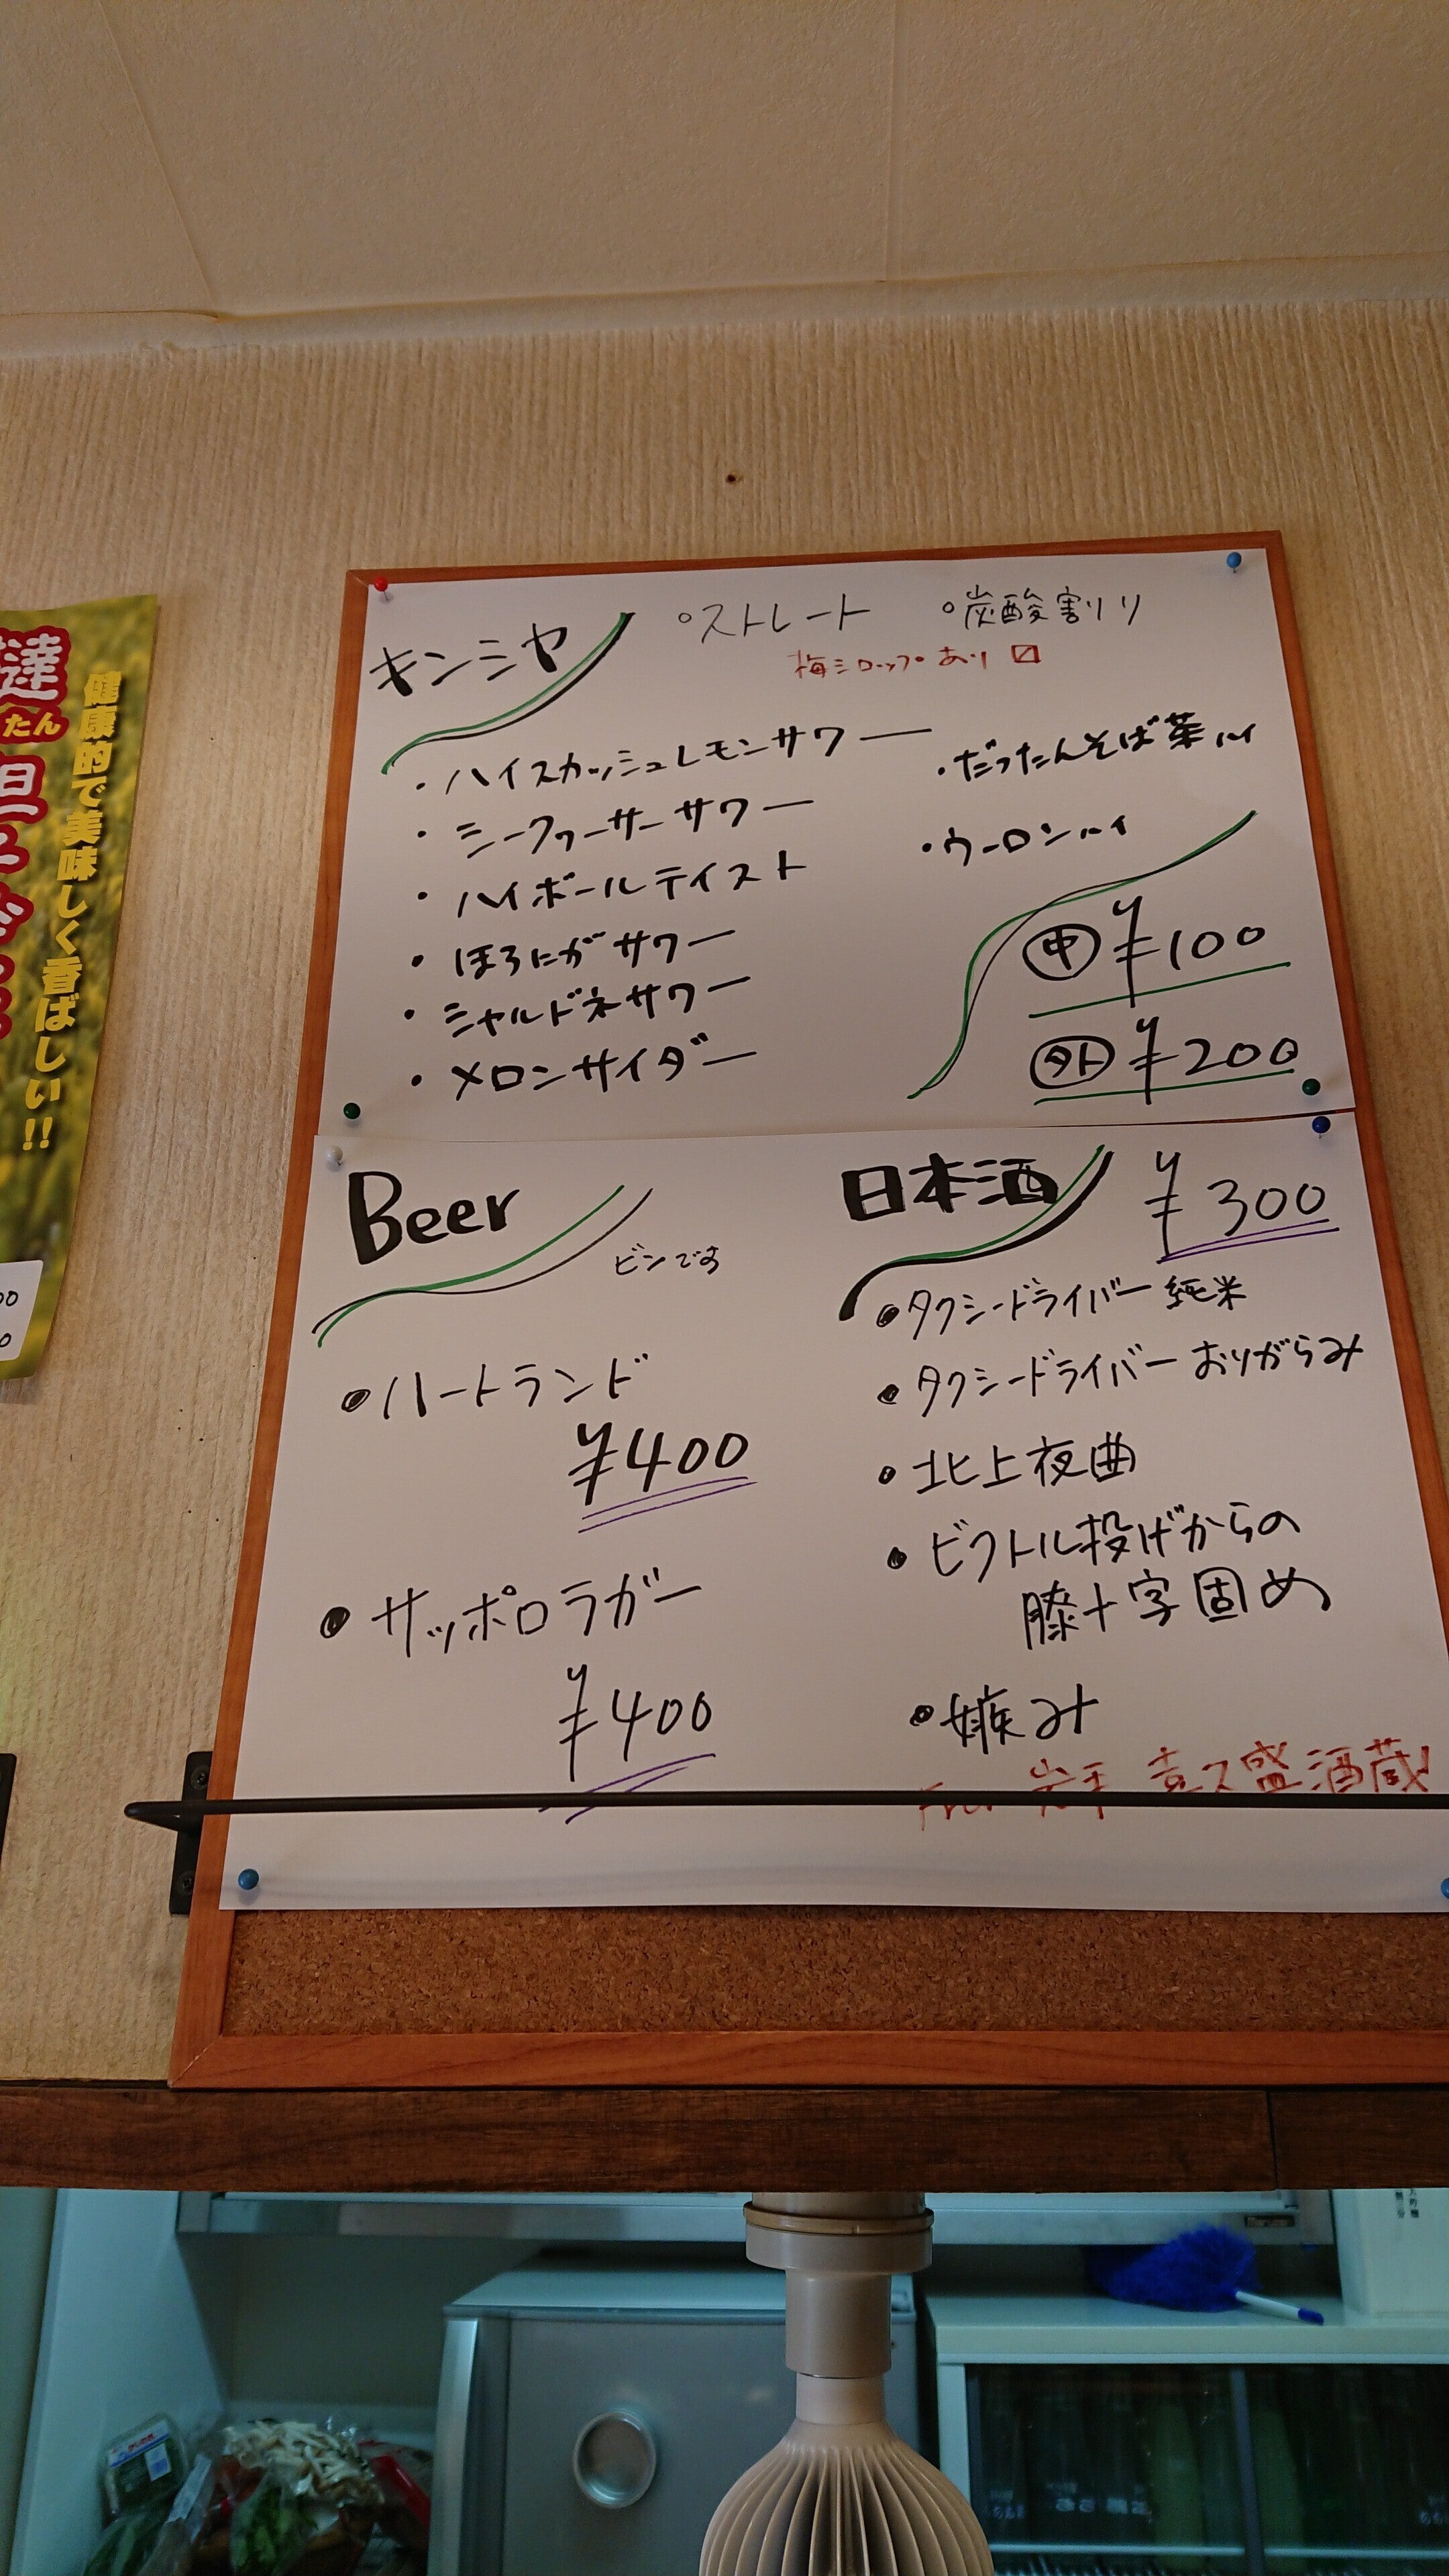 キンミヤ
○ストレート ○炭酸割り
梅シロップあり
・ハイスカッシュレモンサワー
・シークヮーサーサワー
・ハイボールテイスト
・ほろにがサワー
・シャルドネサワー
・メロンサイダー
・だったんそば茶ハイ
・ウーロンハイ
中 ¥100
外 ¥200
Beer
ビンです
●ハートランド
¥400
●サッポロラガー
¥400
日本酒 ¥300
●タクシードライバー 純米
●タクシードライバー おりがらみ
●北上夜曲
●ビクトル投げからの
膝十字固め
●嫉み
岩手 喜久盛酒蔵
健康的で美味しく香ばしい!!
達
たん